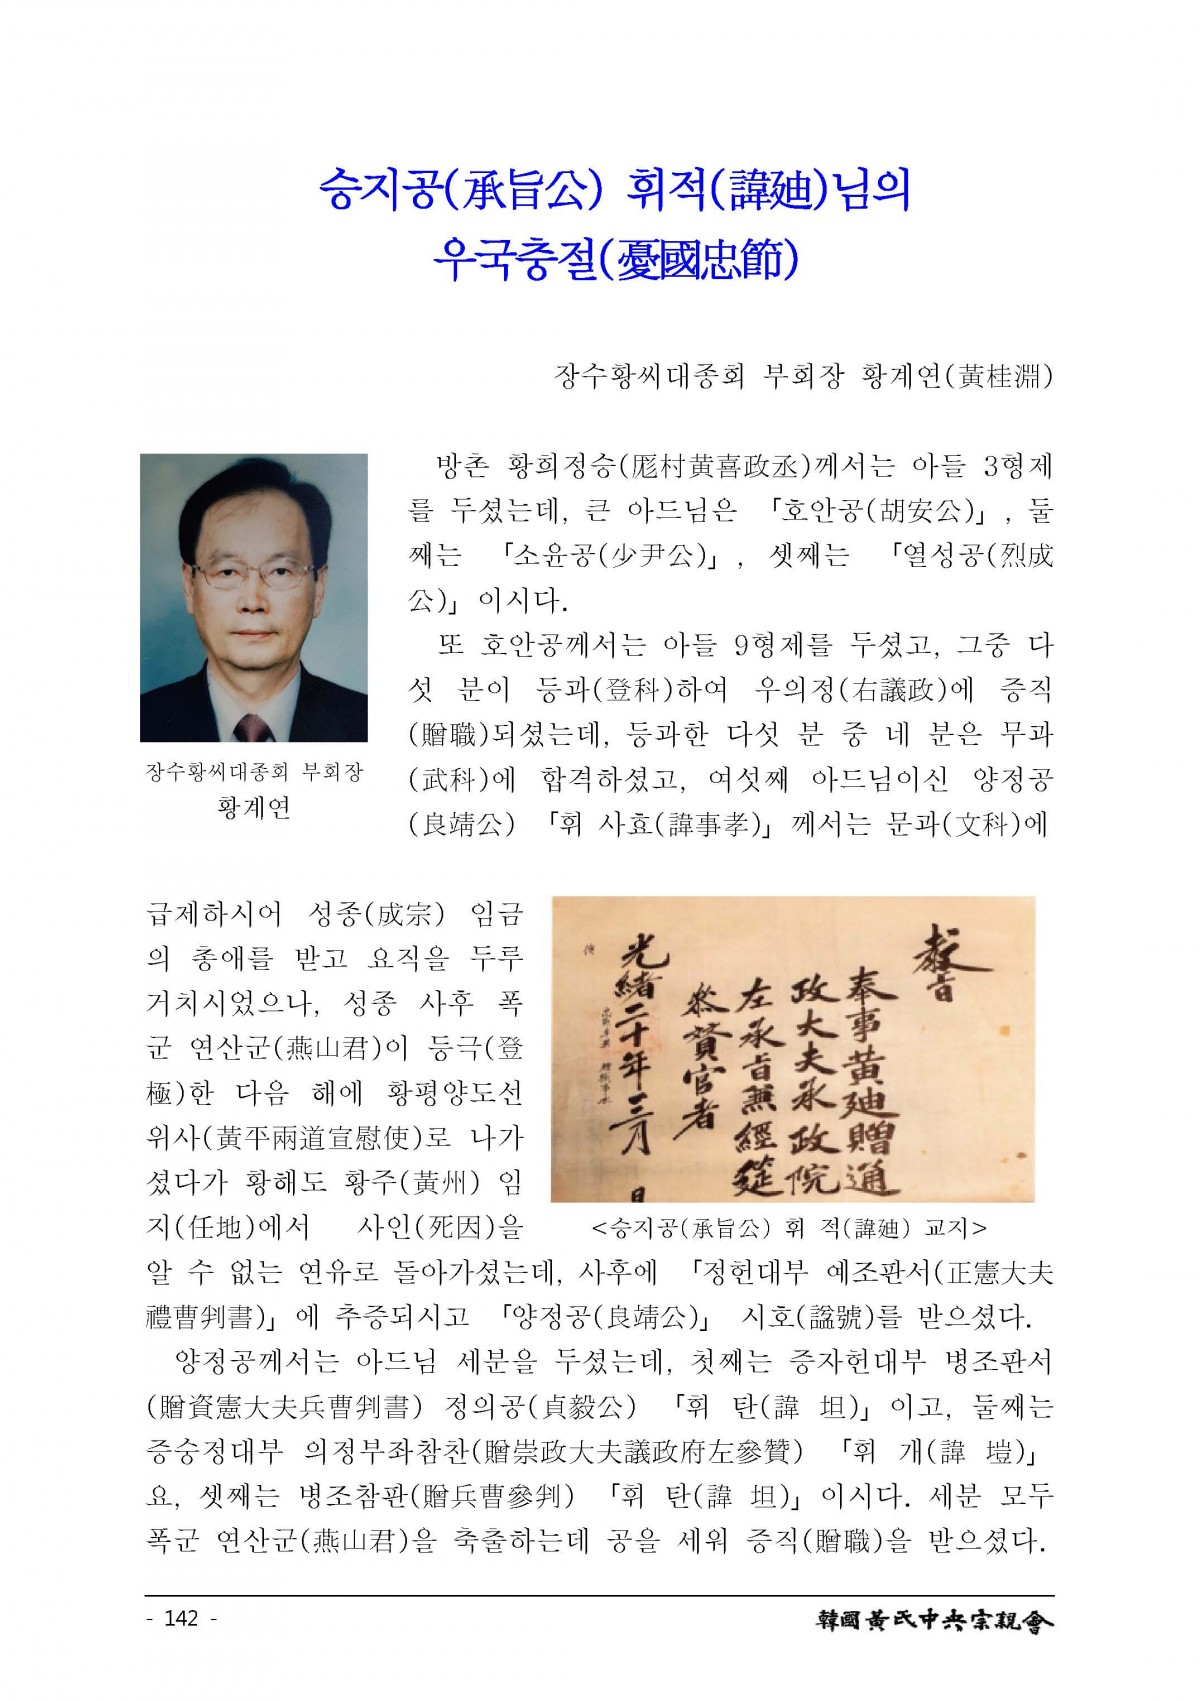 승지공(承旨公) 휘적(諱廸)님의
우국충절(憂國忠節)
장수황씨대종회 부회장 황계연(黃桂淵)
방촌 황희정승(厖村黃喜政丞)께서는 아들 3형제
를 두셨는데, 큰 아드님은 「호안공(胡安公)」, 둘
째는 「소윤공(少尹公)」, 셋째는 「열성공(烈成
公)」이시다.
또 호안공께서는 아들 9형제를 두셨고, 그중 다
섯 분이 등과(登科)하여 우의정(右議政)에 증직
(贈職)되셨는데, 등과한 다섯 분 중 네 분은 무과
(武科)에 합격하셨고, 여섯째 아드님이신 양정공
(良靖公) 「휘 사효(諱事孝)」께서는 문과(文科)에
장수황씨대종회 부회장
황계연
급제하시어 성종(成宗) 임금
의 총애를 받고 요직을 두루
거치시었으나, 성종 사후 폭
군 연산군(燕山君)이 등극(登
極)한 다음 해에 황평양도선
위사(黃平兩道宣慰使)로 나가
셨다가 황해도 황주(黃州) 임
지(任地)에서 사인(死因)을
敎旨
奉事黃廸贈通
政大夫承政院
左承旨兼經筵
叅贊官者
光緖二十年三月 日
<승지공(承旨公) 휘 적(諱廸) 교지>
알 수 없는 연유로 돌아가셨는데, 사후에 「정헌대부 예조판서(正憲大夫
禮曹判書)」에 추증되시고 「양정공(良靖公)」 시호(諡號)를 받으셨다.
양정공께서는 아드님 세분을 두셨는데, 첫째는 증자헌대부 병조판서
(贈資憲大夫兵曹判書) 정의공(貞毅公) 「휘 탄(諱 坦)」이고, 둘째는
증숭정대부 의정부좌참찬(贈崇政大夫議政府左參贊) 「휘 개(諱 塏)」
요, 셋째는 병조참판(贈兵曹參判) 「휘 탄(諱 坦)」이시다. 세분 모두
폭군 연산군(燕山君)을 축출하는데 공을 세워 증직(贈職)을 받으셨다.
- 142 -
韓國黃氏中央宗親會